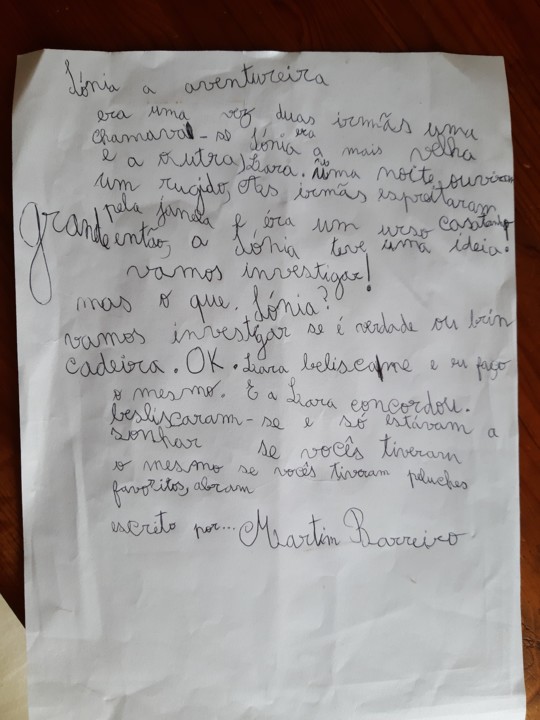 Sónia a aventureira
era uma vez duas irmãs uma
chamava-se Sónia era a mais velha
e a outra, Lara. uma noite ouviram
um rugido, As irmãs espreitaram
pela janela e éra um urso castanho
grande então, a Sónia teve uma ideia.
vamos investigar!
mas o que. Sónia?
vamos investigar se é verdade ou brin
cadeira. OK. Lara belisca me e eu faço
o mesmo. E a Lara concordou.
besliscaram-se e só estávam a
sonhar se vocês tiveram
o mesmo se vocês tiveram peluches
favoritos, abram
escrito por... Martim Barreiro